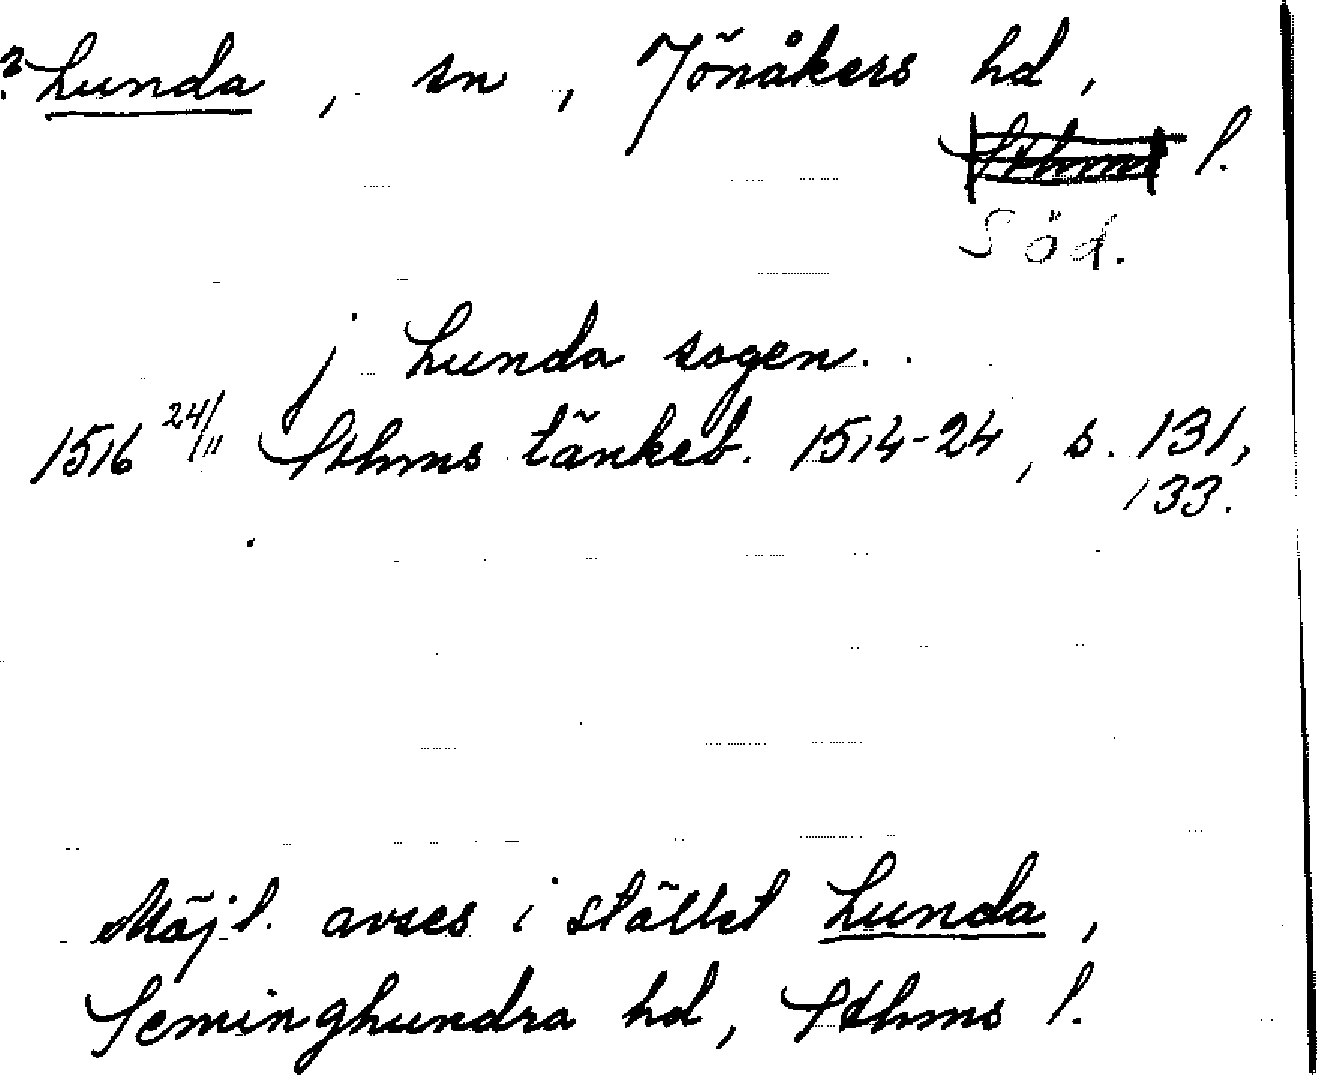 ? Lunda, sn, Jönåkers hd,
Sthms l.
Söd.
j Lunda sogen.
1516 24/11 Sthms tänkeb. 1514-24, s. 131,
133.
Möjl. avses i stället Lunda,
Seminghundra hd, Sthms l.